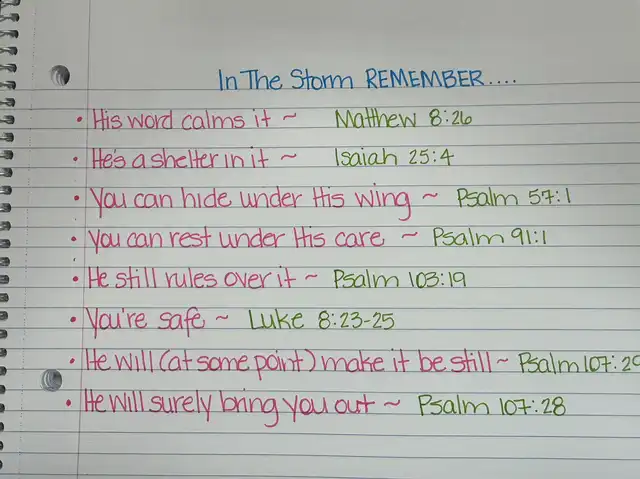 In The Storm REMEMBER....
• His word calms it ~ Matthew 8:26
• He's a shelter in it ~ Isaiah 25:4
• You can hide under His wing ~ Psalm 57:1
• You can rest under His care ~ Psalm 91:1
• He still rules over it ~ Psalm 103:19
• You're safe ~ Luke 8:23-25
• He will (at some point) make it be still ~ Psalm 107:29
• He will surely bring you out ~ Psalm 107:28